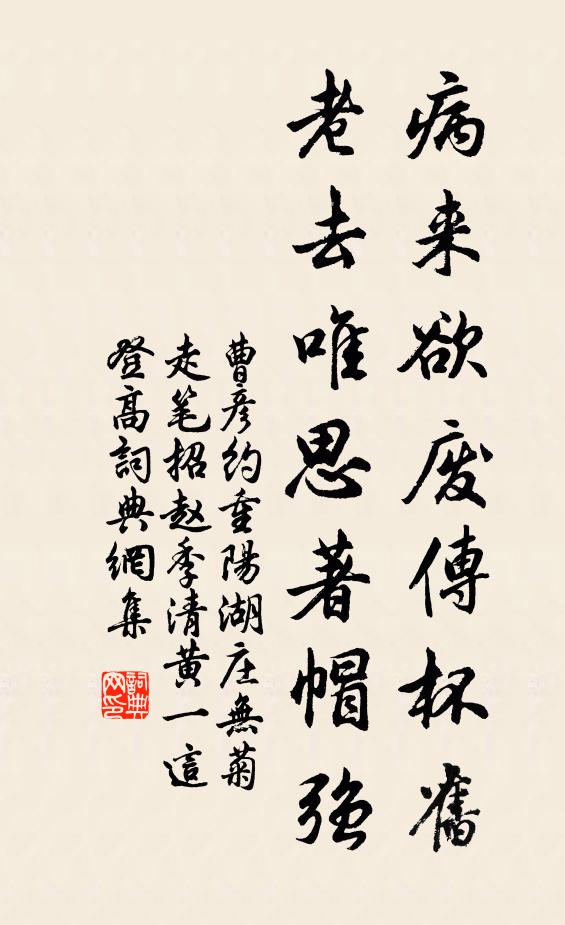 病来欲废傳杯舊
老去唯思著帽强
曹彦約重陽湖庄無菊
走笔招赵季清黄一這
登高詞典網集
詞典网印